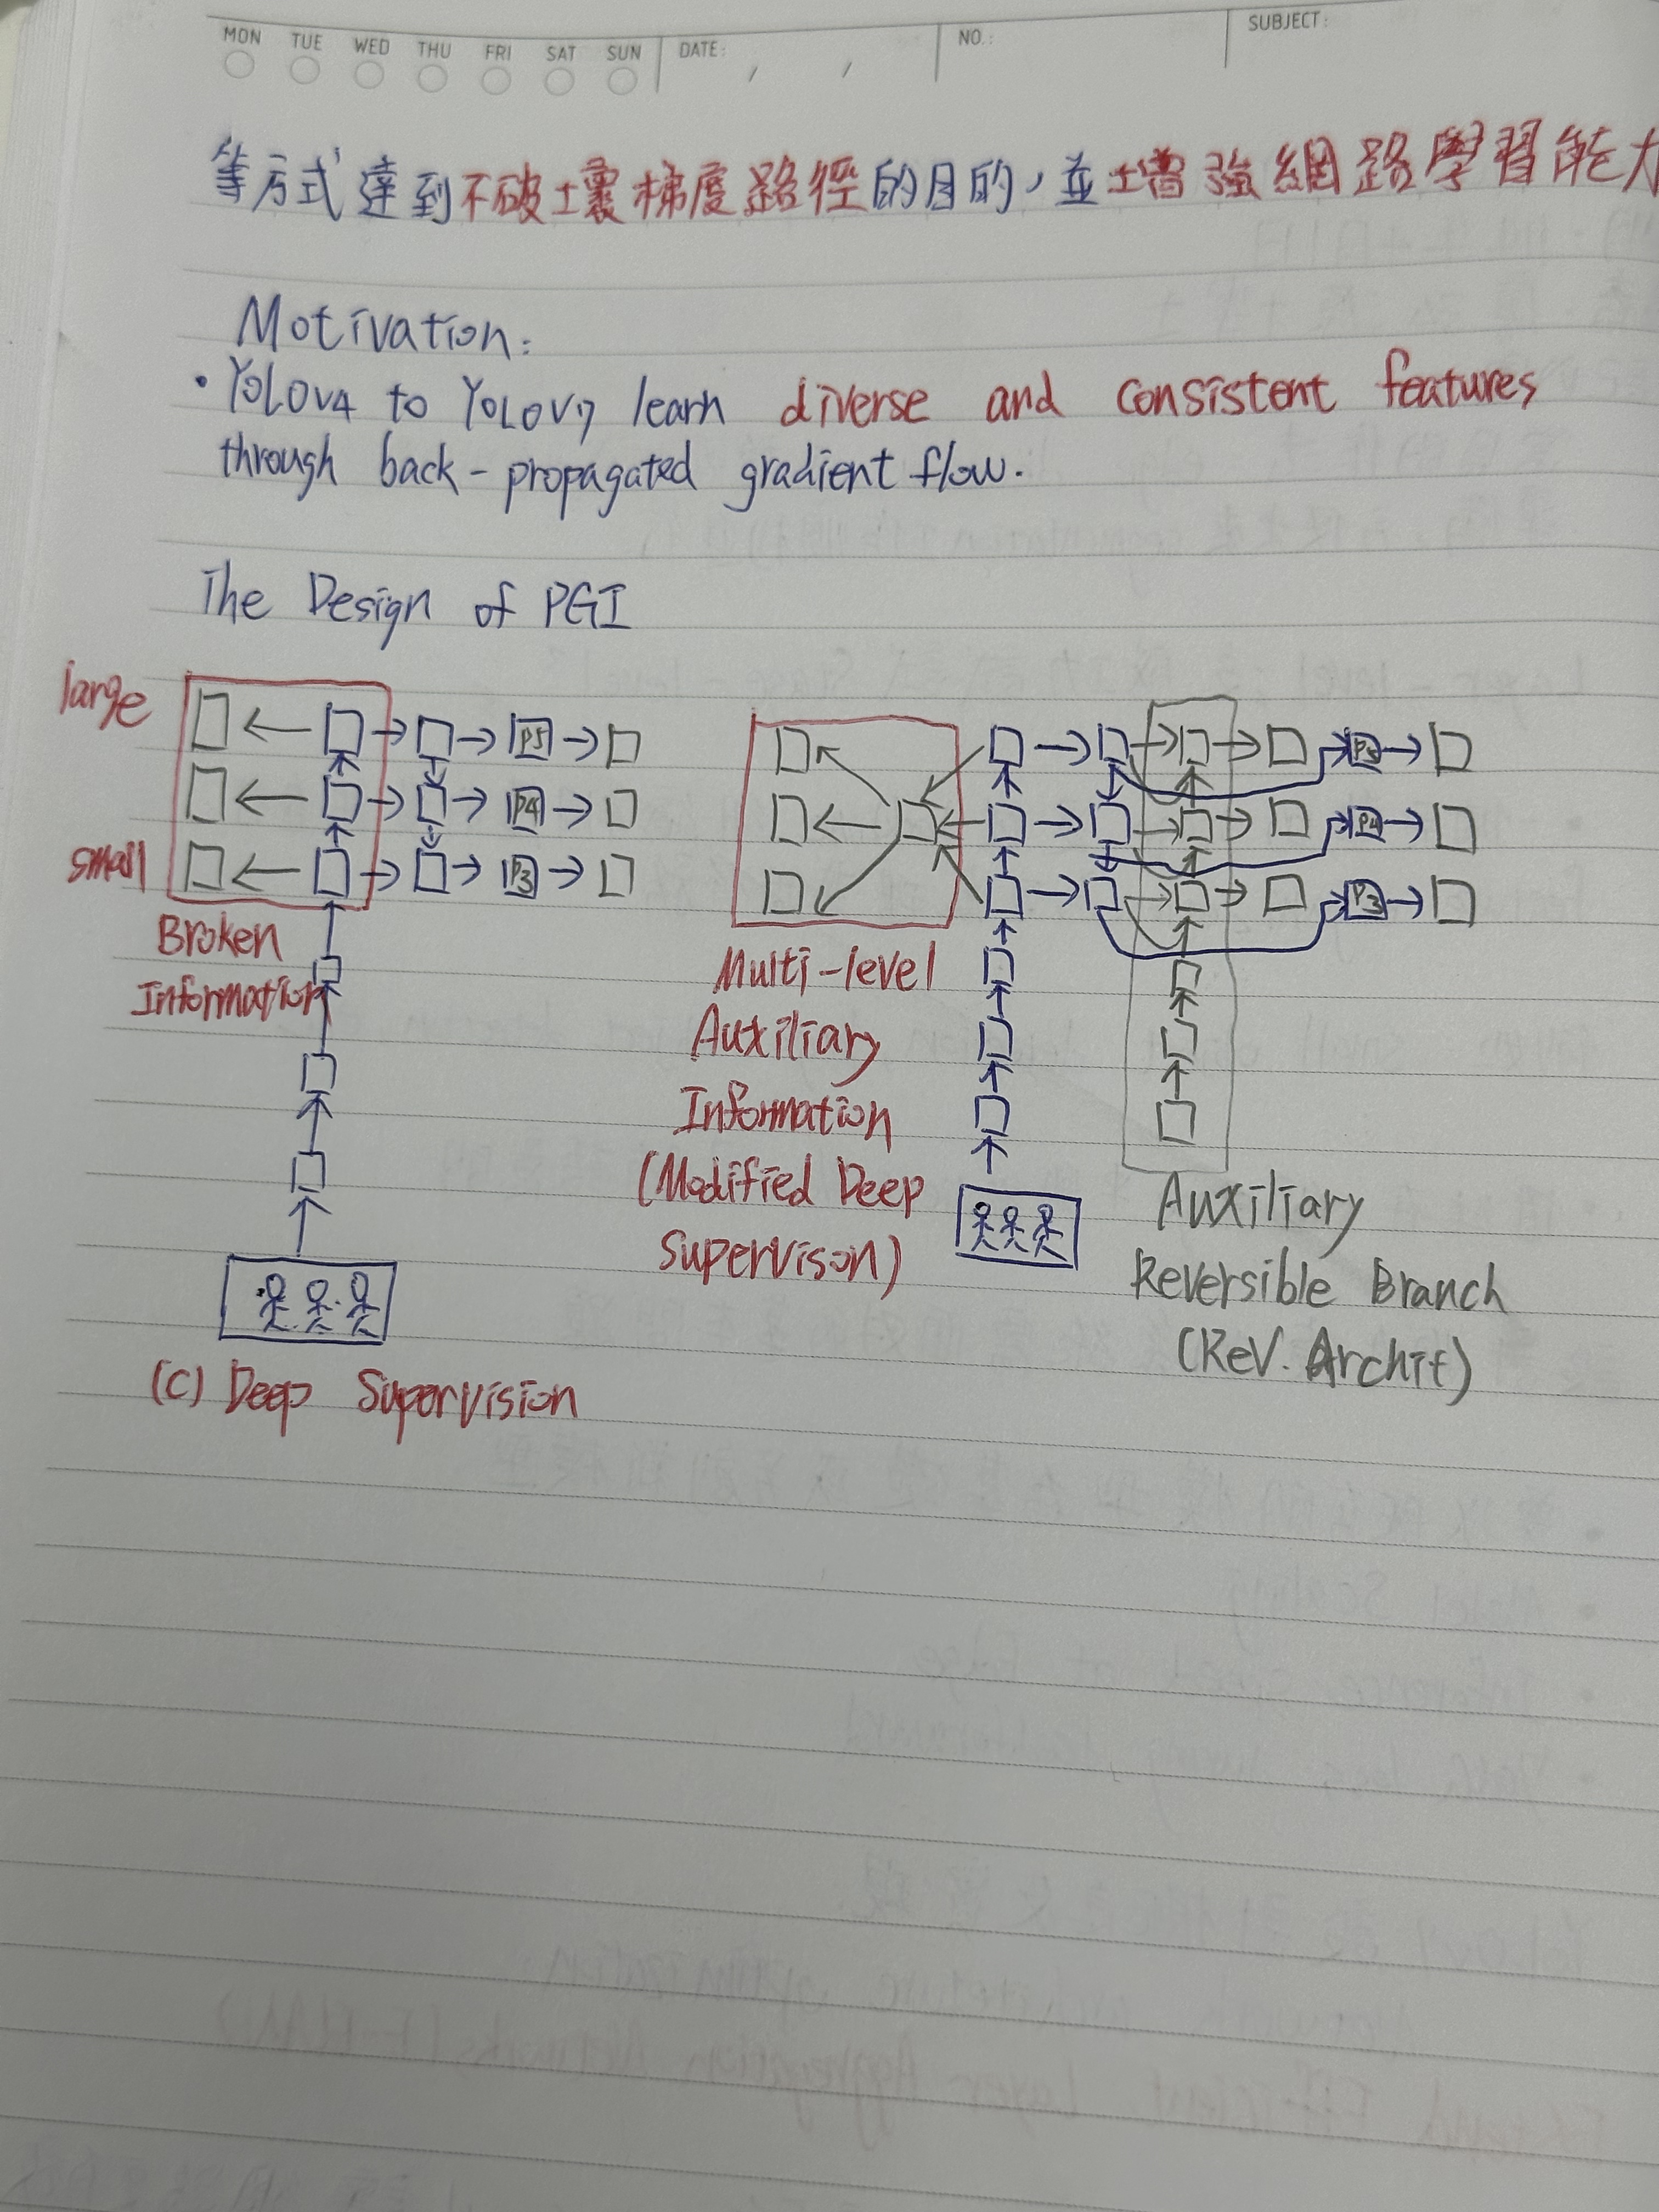 MON TUE WED THU FRI SAT SUN DATE: / / NO.: SUBJECT:
等方式達到不破壞梯度路徑的目的,並增強網路學習能力
Motivation:
• YOLOv4 to YOLOv7 learn diverse and consistent features
through back-propagated gradient flow.
The Design of PGI
large
P5
P4
small
P3
Broken
Information
(C) Deep Supervision
P5
P4
P3
Multi-level
Auxiliary
Information
(Modified Deep
Supervison)
Auxiliary
Reversible Branch
(Rev. Archit)